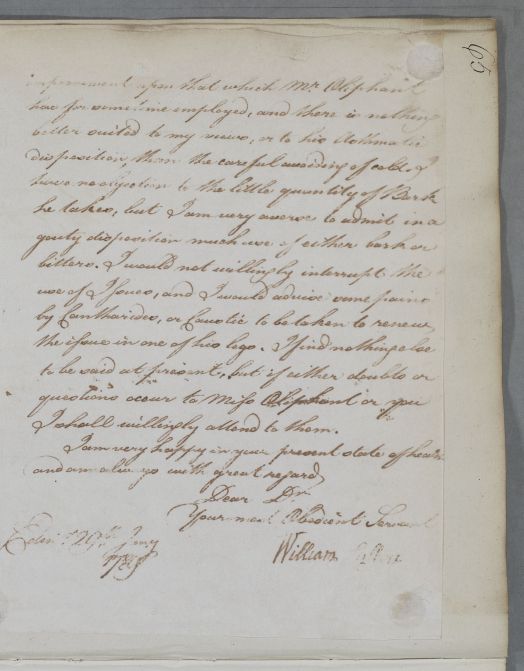 65
improvement upon that which Mr Oliphant
has for some time employed, and there is nothing
better suited to my views, or to his Asthmatic
disposition, than the careful avoiding of cold. I
have no objection to the little quantity of Bark
he takes, but I am very averse to admit in a
gouty disposition much use of either bark or
bitters. I would not willingly interrupt the
use of Issues, and I would advise some pains
by Cantharides, or Caustic to be taken to renew
the issue in one of his legs. I find nothing else
to be said at present, but if either doubts or
questions occur to Miss Oliphant or you
I shall willingly attend to them.
I am very happy in your present state of health
and am always with great regard
Dear Dr.
Your most Obedient Servant
Edinr. 29th Jany
William Cullen